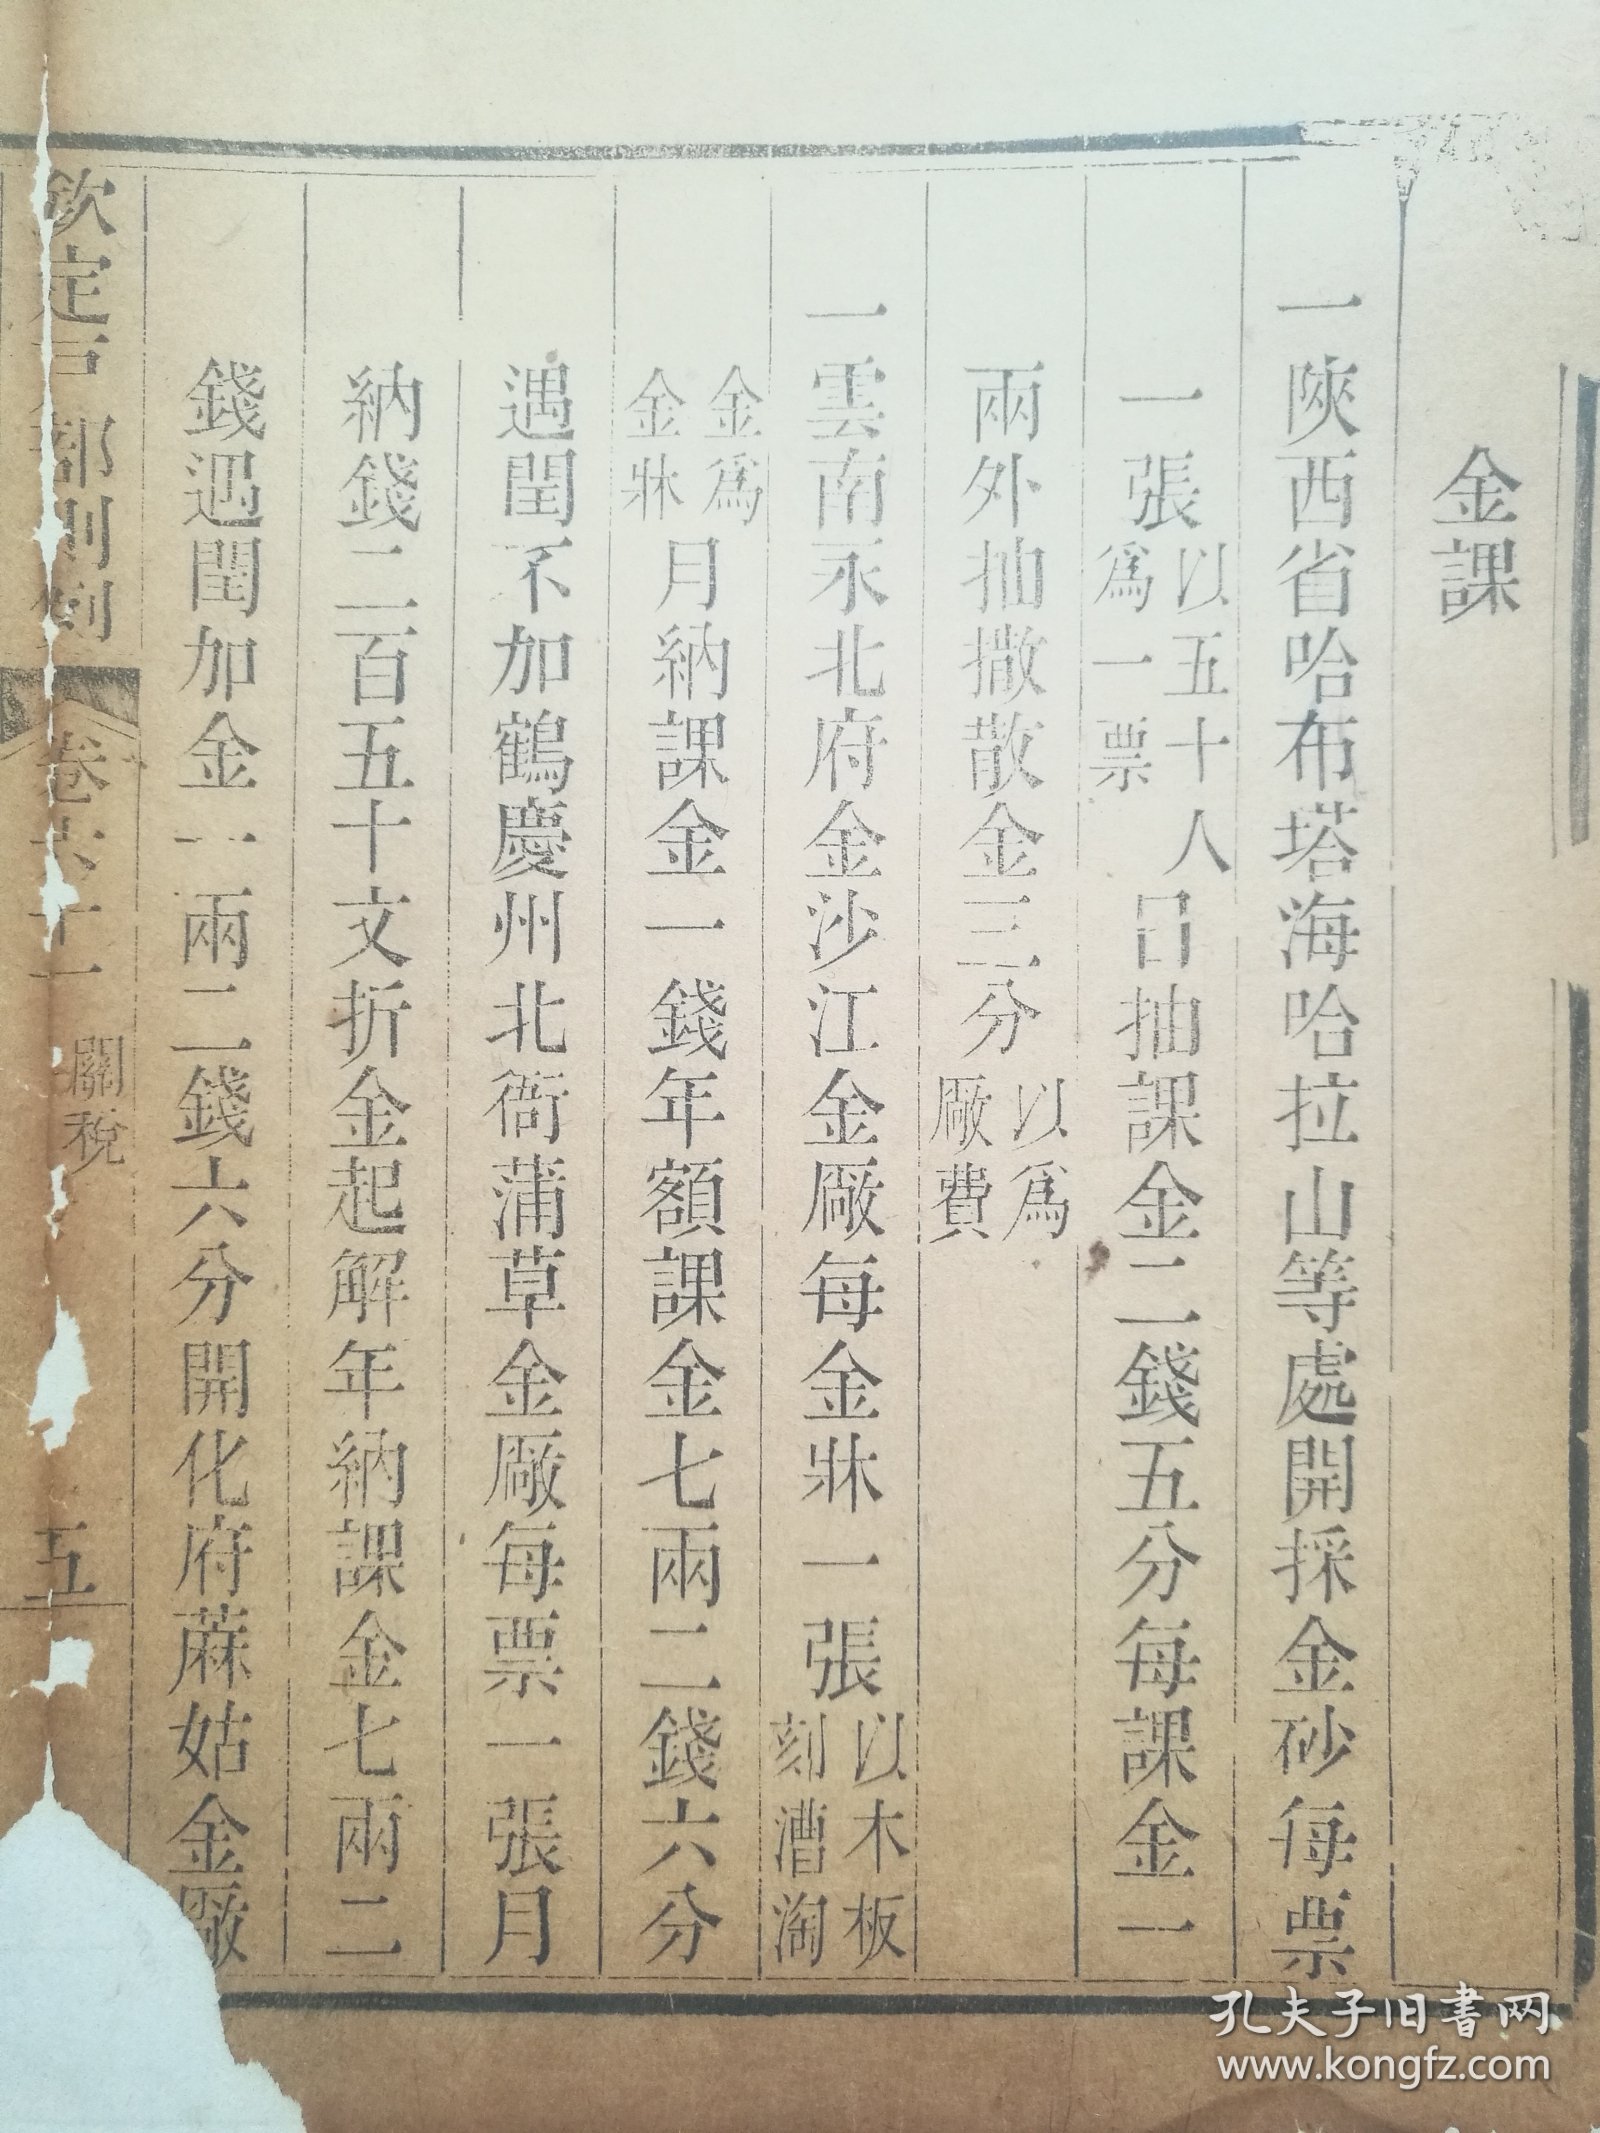 金課
一陝西省哈布塔海哈拉山等處開採金砂每票
一張以五十人爲一票日抽課金二錢五分每課金一
兩外抽撒散金三分以爲厰費
一雲南永北府金沙江金厰每金牀一張以木板刻漕淘
金爲金牀月納課金一錢年額課金七兩二錢六分
遇閏不加鶴慶州北衙蒲草金厰每票一張月
納錢二百五十文折金起解年納課金七兩二
錢遇閏加金一兩二錢六分開化府蔴姑金厰
欽定戶部則例 卷六十一 關稅 五
孔夫子旧书网
www.kongfz.com